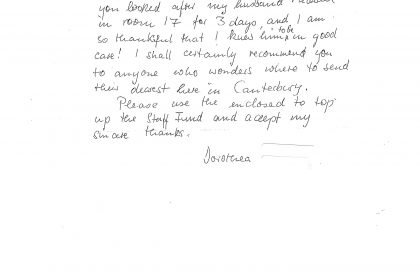 you looked after my husband
in room 17 for 3 days, and I am
so thankful that I knew him to be in good
care! I shall certainly recommend you
to anyone who wonders where to send
their dearest here in Canterbury.
Please use the enclosed to top
up the Staff Fund and accept my
sincere thanks.
Dorothea